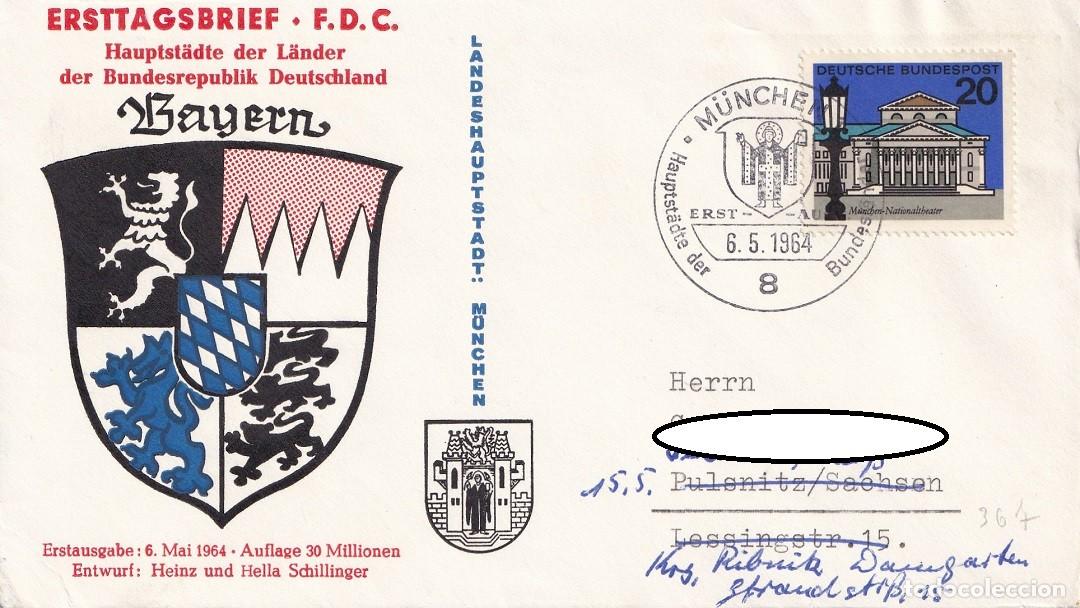 ERSTTAGSBRIEF · F.D.C.
Hauptstädte der Länder
der Bundesrepublik Deutschland
Bayern
LANDESHAUPTSTADT: MÜNCHEN
Erstausgabe: 6. Mai 1964 · Auflage 30 Millionen
Entwurf: Heinz und Hella Schillinger
DEUTSCHE BUNDESPOST
20
München-Nationaltheater
MÜNCHEN
Hauptstädte der
Bundes
ERST - AU
6.5.1964
8
Herrn
15.5. Pulsnitz/Sachsen
Lessingstr.15.
367
Krs. Ribnitz Damgarten
todocoleccion